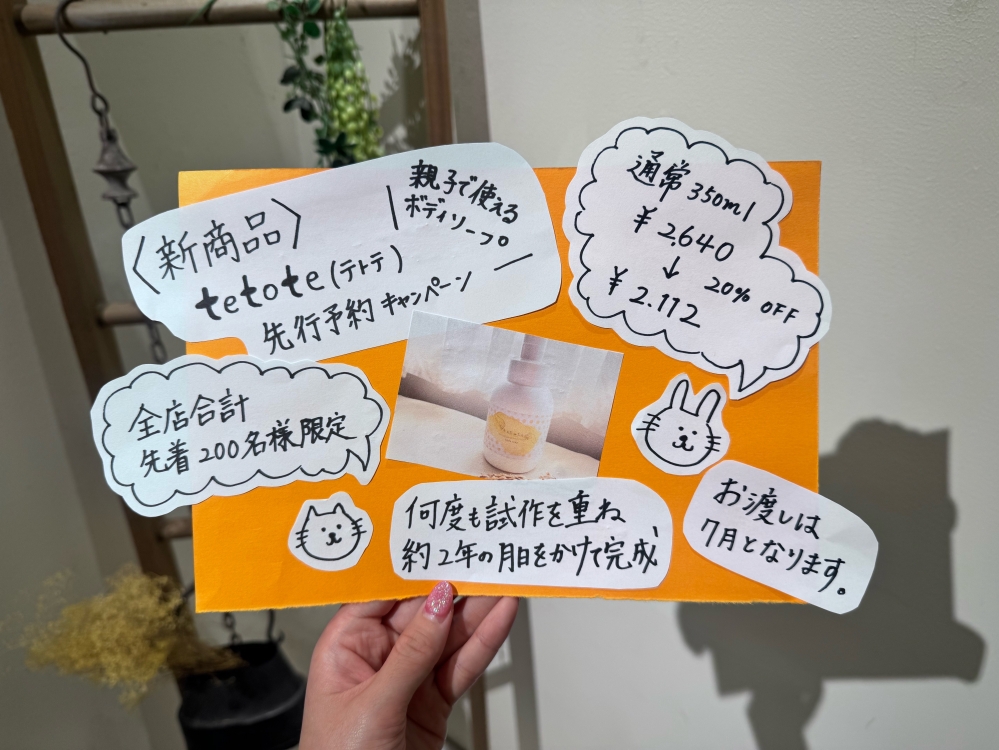 〈新商品〉
親子で使える
ボディソープ。
tetote(テトテ)
先行予約キャンペーン
通常350ml
¥2,640
↓ 20% OFF
¥2.112
全店合計
先着200名様限定
何度も試作を重ね
約2年の月日をかけて完成
お渡しは
7月となります。